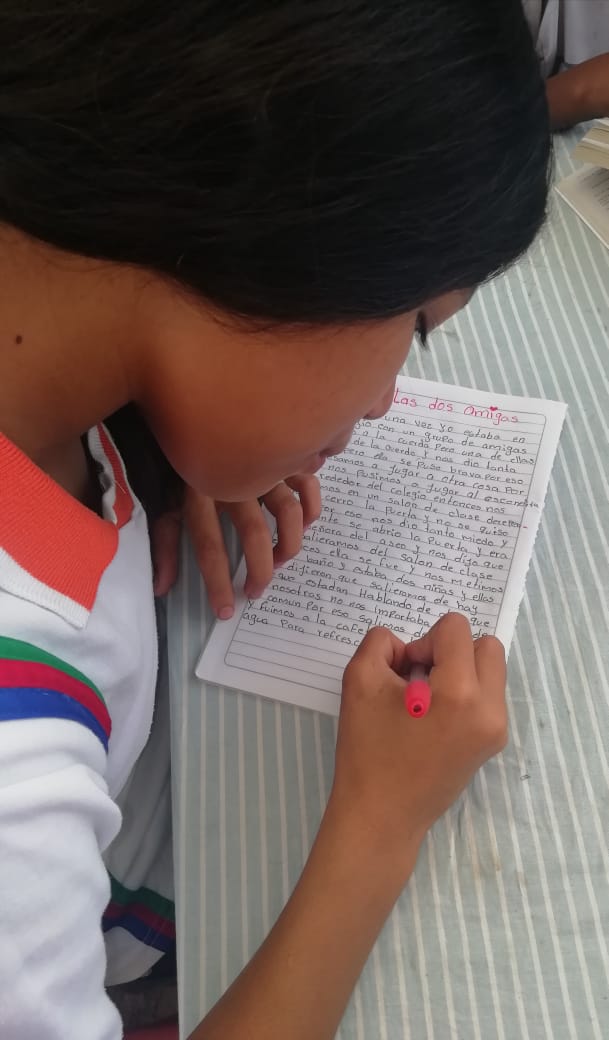 Las dos amigas
una vez yo estaba en
con un grupo de amigas
a la cuerda Pero una de ellas
de la cuerda y nos dio tanta
Pero ella se puso brava. Por eso
a Jugar a otra cosa Por
nos Pusimos a Jugar al escondite
rededor del colegio entonces nos
en un salon de clase de
cerro la Puerta y no se quiso
Por eso nos dio tanto miedo y
se abrio la Puerta y era
señora del aseo y nos dijo que
salieramos del salon de clase
ella se fue y nos metimos
baño y estaba dos niñas y ellos
dijieron que salieramos de hay
que estadan Hablando de que
nosotras no nos importaba
comun. Por eso salimos de
y fuimos a la cafe
agua Para refresc